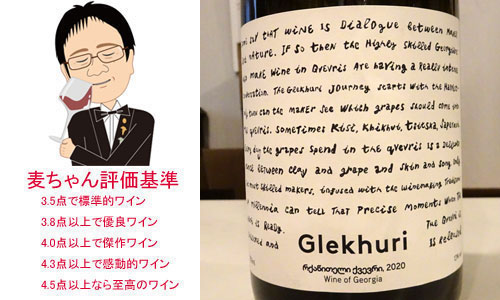 麦ちゃん評価基準
3.5点で標準的ワイン
3.8点以上で優良ワイン
4.0点以上で傑作ワイン
4.3点以上で感動的ワイン
4.5点以上なら至高のワイン
THAT WINE IS DIALOGUE BETWEEN
NATURE. IF SO THEN THE Highly SKILLED Georgians
MAKE WINE IN QVEVRIS ARE HAVING A REALLY
The Glekhuri JOURNEY STARTS WITH THE
CAN THE MAKER SEE WHICH GRAPES SHOULD COME
QVEVRIS. SOMETIMES KISI, KHIKHVI, TSITSKA, SAPERAVI
THE GRAPES SPEND IN THE QVEVRI IS A
BETWEEN CLAY AND GRAPE AND SKIN AND SONG. Only
SKILLED MAKERS, INFUSED WITH THE WINEMAKING
MILLENNIA CAN TELL THAT PRECISE MOMENT WHEN THE
IS READY.
THE QVEVRI IS
AND
IS RELEASED
Glekhuri
რქაწითელი ქვევრი, 2020
Wine of Georgia